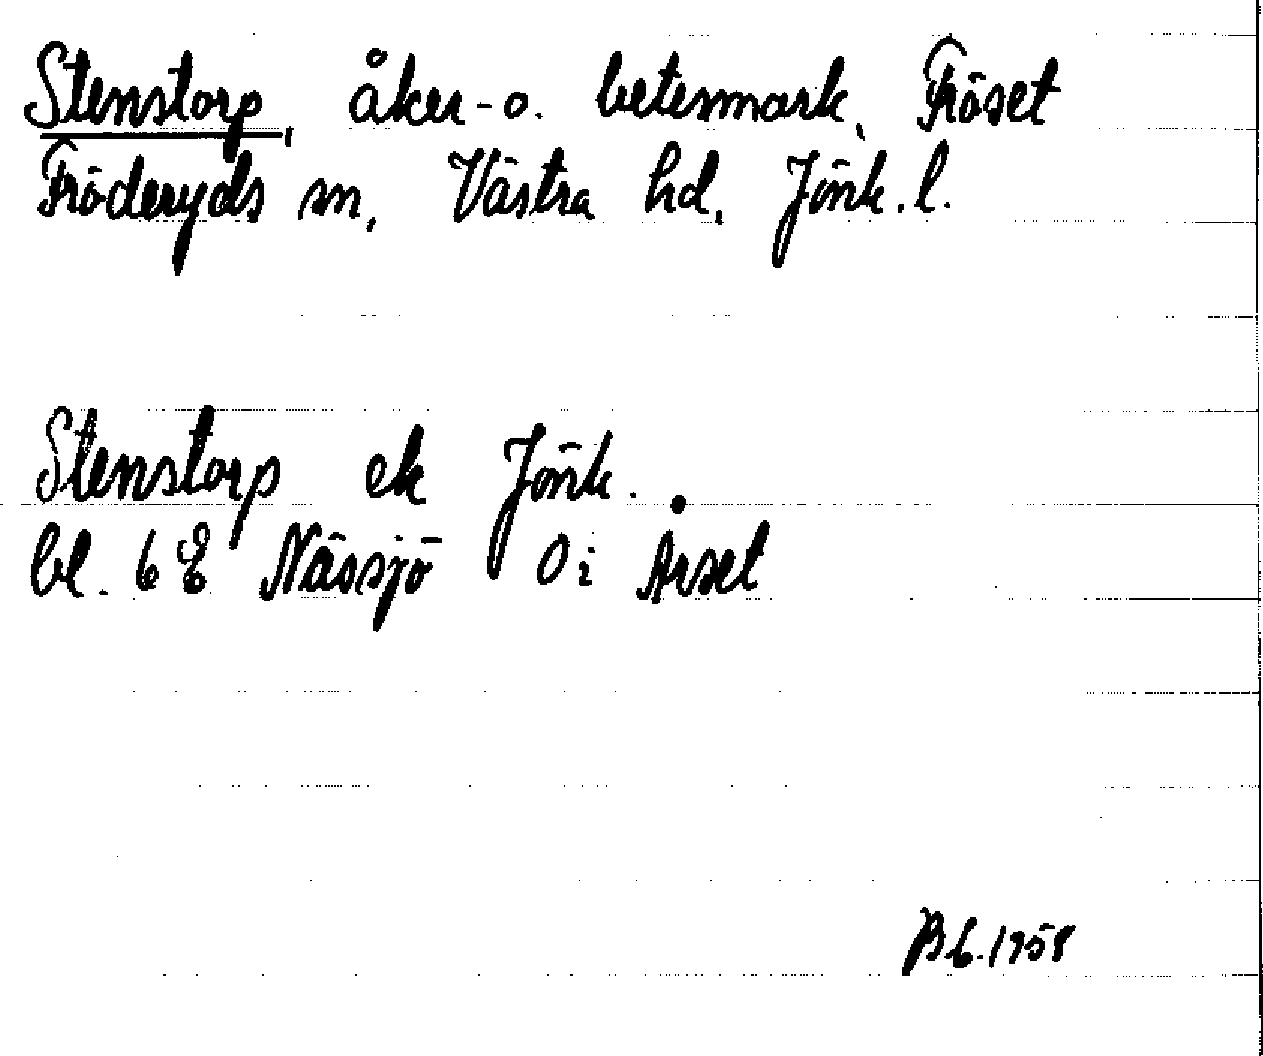 Stenstorp, åker- o. betesmark, Fröset
Fröderyds sn, Västra hd, Jönk. l.
Stenstorp ek Jönk.
bl. 6E Nässjö Oi Arset
Bb. 1958